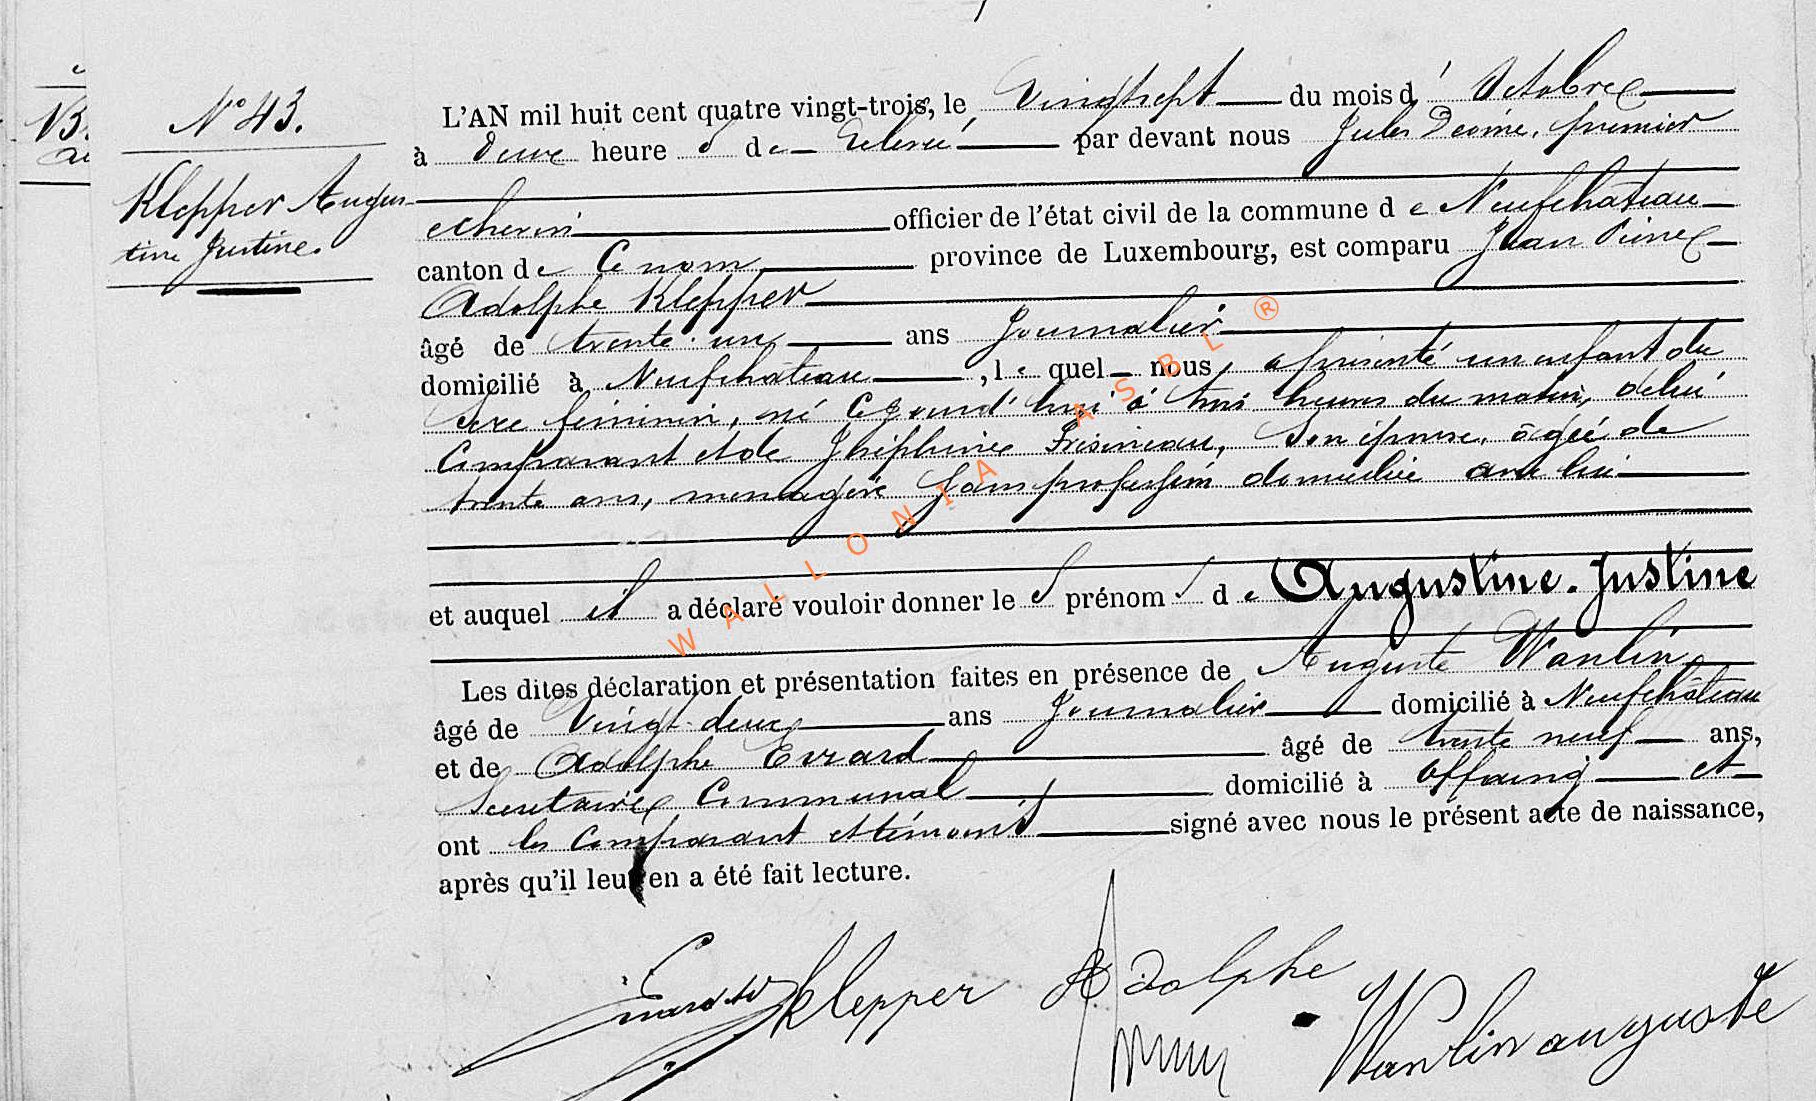 N° 43.
Klepper Augus-
tine Justine.
L'AN mil huit cent quatre vingt-trois, le Vingt sept du mois d' Octobre
à deux heures de relevée par devant nous Jules premier
échevin officier de l'état civil de la commune de Neufchâteau
canton de Ce nom province de Luxembourg, est comparu Jean Pierre
Adolphe Klepper
âgé de trente-un ans Journalier
domicilié à Neufchâteau, lequel nous a présenté un enfant du
Sexe féminin, né Cejourd'hui à trois heures du matin, de lui
Comparant et de Joséphine Son épouse, âgée de
trente ans, menagère Sans profession domiciliée avec lui
et auquel il a déclaré vouloir donner les prénoms de Augustine-Justine
Les dites déclaration et présentation faites en présence de Auguste Wanlin
âgé de Vingt-deux ans Journalier domicilié à Neufchâteau
et de Adolphe Evrard âgé de trente neuf ans,
Secrétaire Communal domicilié à Offaing et
ont les Comparant et témoins signé avec nous le présent acte de naissance,
après qu'il leur en a été fait lecture.
Klepper Adolphe
Wanlin auguste
WALLONIA ASBL ®